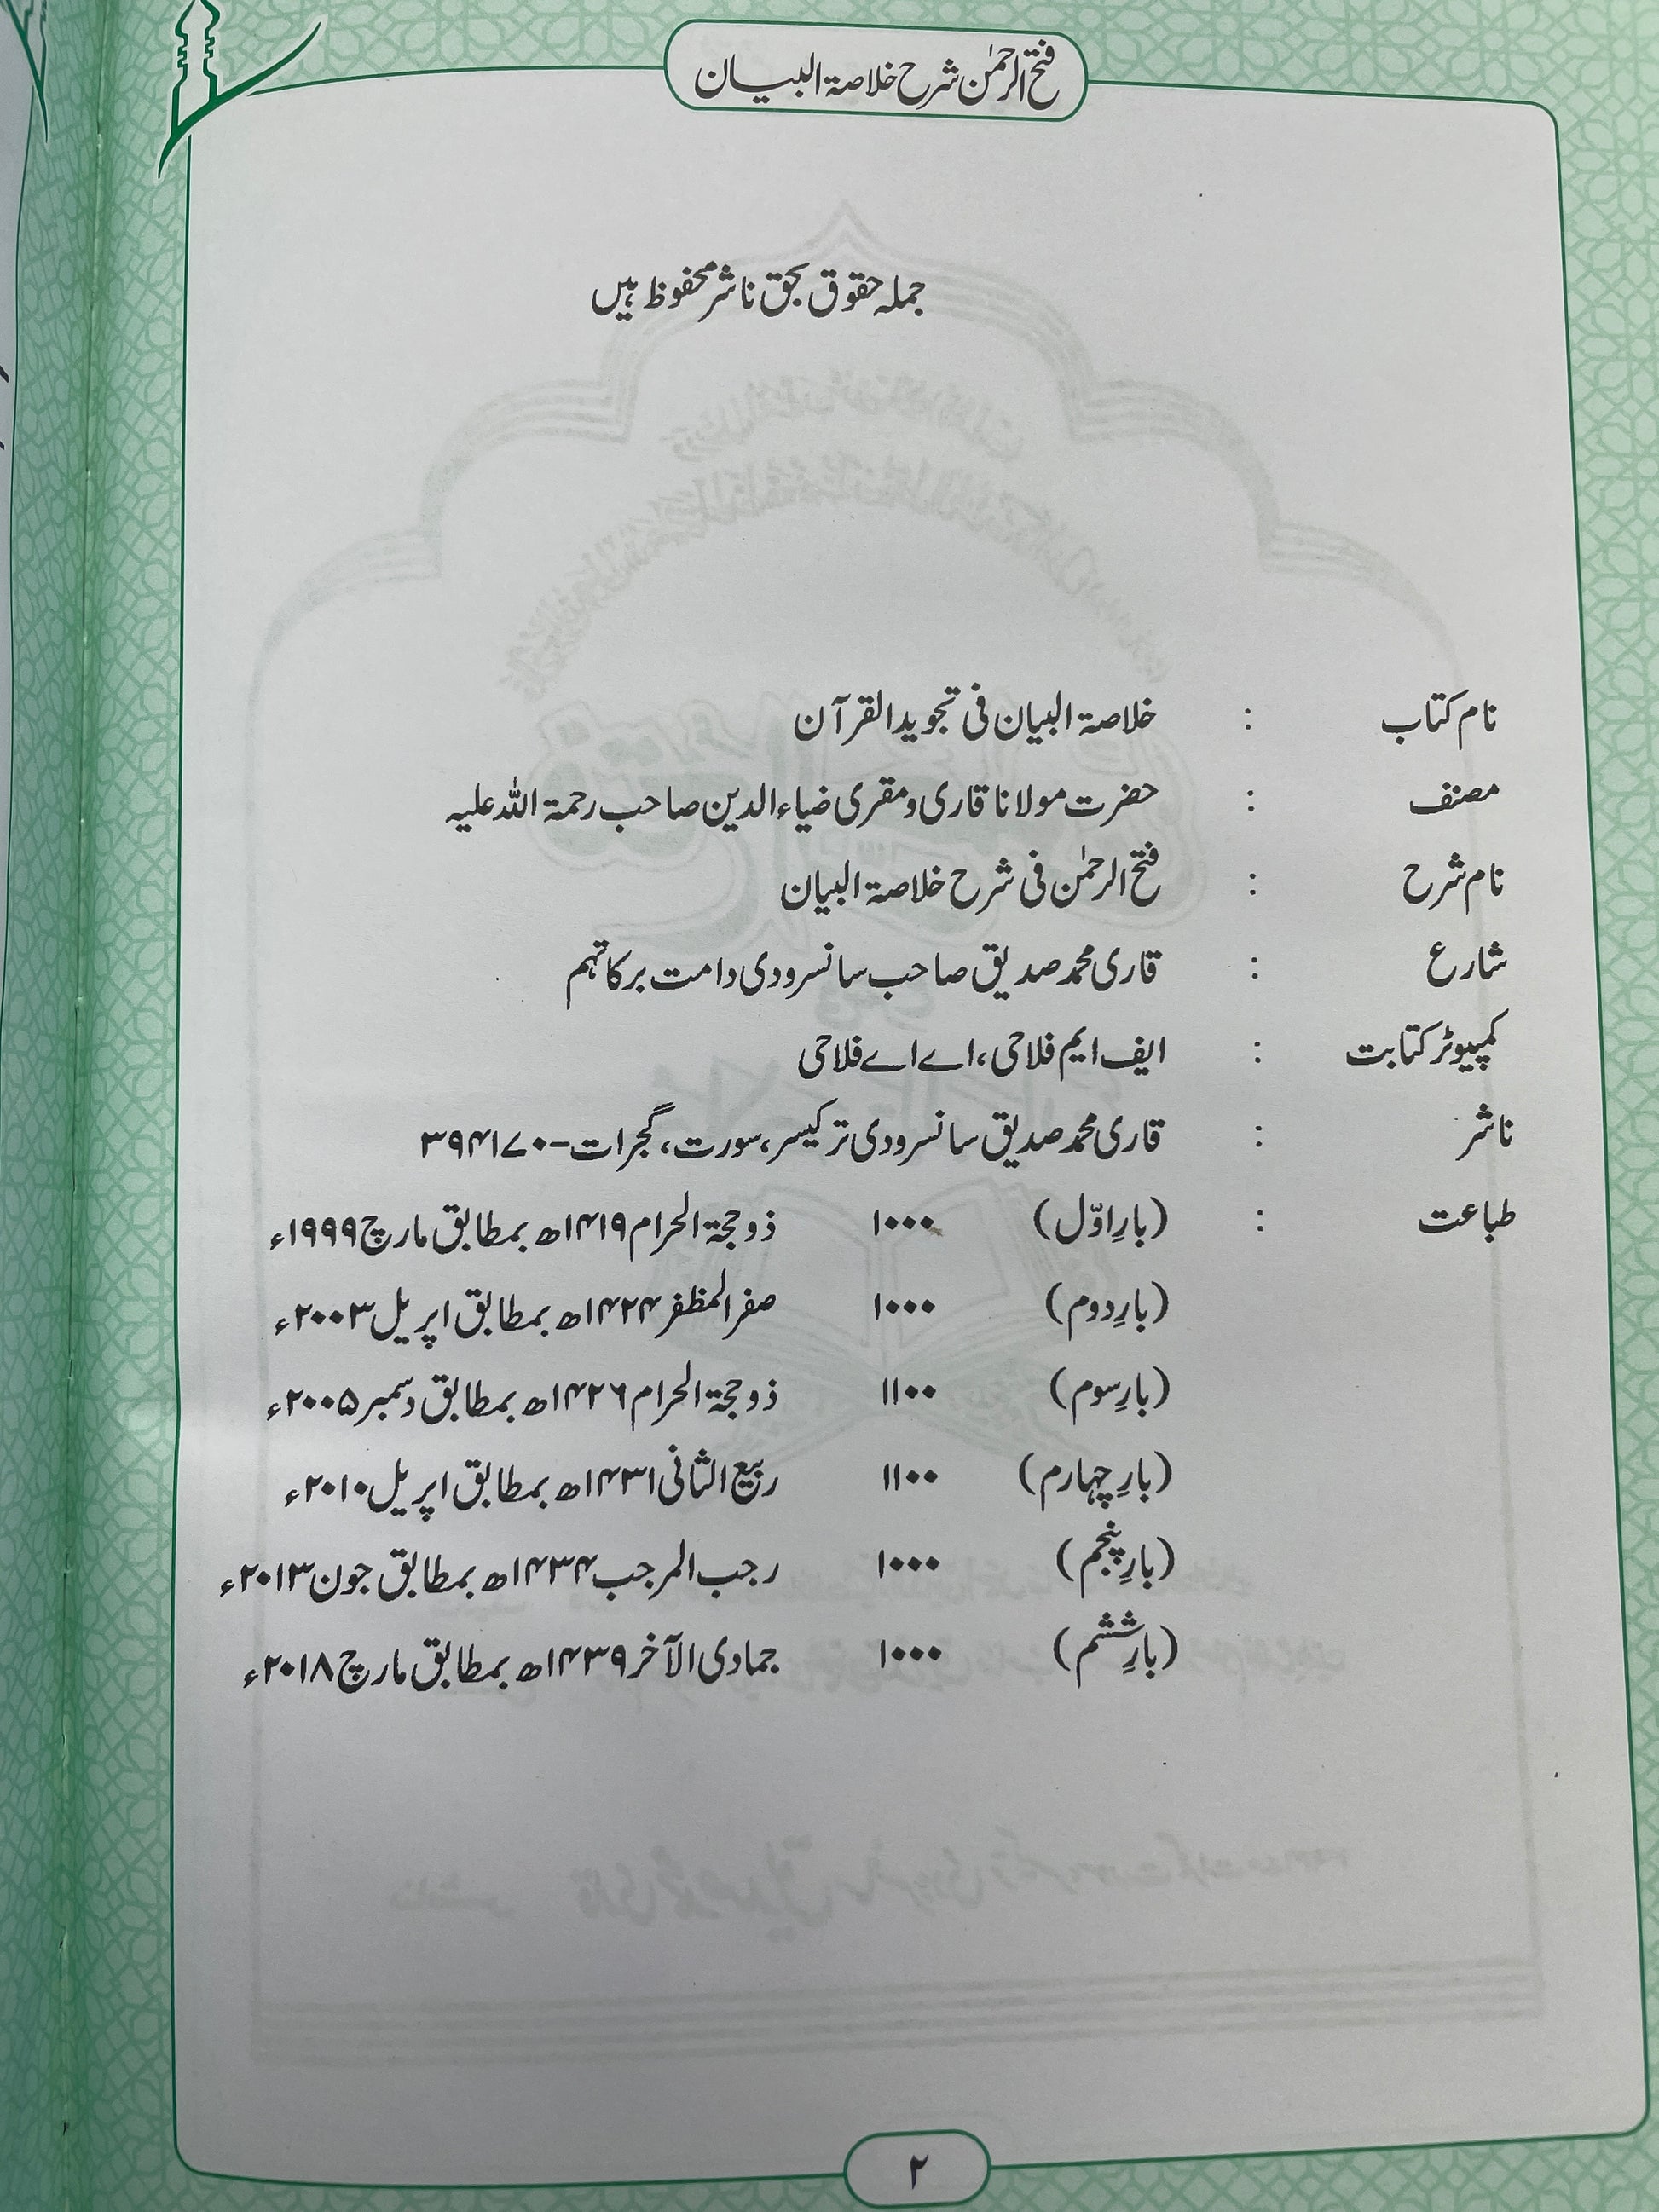 فتح الرحمٰن شرح خلاصۃ البیان
جملہ حقوق بحق ناشر محفوظ ہیں
نام کتاب : خلاصۃ البیان فی تجوید القرآن
مصنف : حضرت مولانا قاری ومقری ضیاء الدین صاحب رحمۃ اللہ علیہ
نام شرح : فتح الرحمٰن فی شرح خلاصۃ البیان
شارع : قاری محمد صدیق صاحب سانسرودی دامت برکاتہم
کمپیوٹر کتابت : ایف ایم فلاحی، اے اے فلاحی
ناشر : قاری محمد صدیق سانسرودی ترکیسر، سورت، گجرات-۳۹۴۱۷۰
طباعت : (بارِ اوّل) ۱۰۰۰ ذوحجۃ الحرام ۱۴۱۹ھ بمطابق مارچ ۱۹۹۹ء
(بارِ دوم) ۱۰۰۰ صفر المظفر ۱۴۲۴ھ بمطابق اپریل ۲۰۰۳ء
(بارِ سوم) ۱۱۰۰ ذوحجۃ الحرام ۱۴۲۶ھ بمطابق دسمبر ۲۰۰۵ء
(بارِ چہارم) ۱۱۰۰ ربیع الثانی ۱۴۳۱ھ بمطابق اپریل ۲۰۱۰ء
(بارِ پنجم) ۱۰۰۰ رجب المرجب ۱۴۳۴ھ بمطابق جون ۲۰۱۳ء
(بارِ ششم) ۱۰۰۰ جمادی الآخر ۱۴۳۹ھ بمطابق مارچ ۲۰۱۸ء
۲